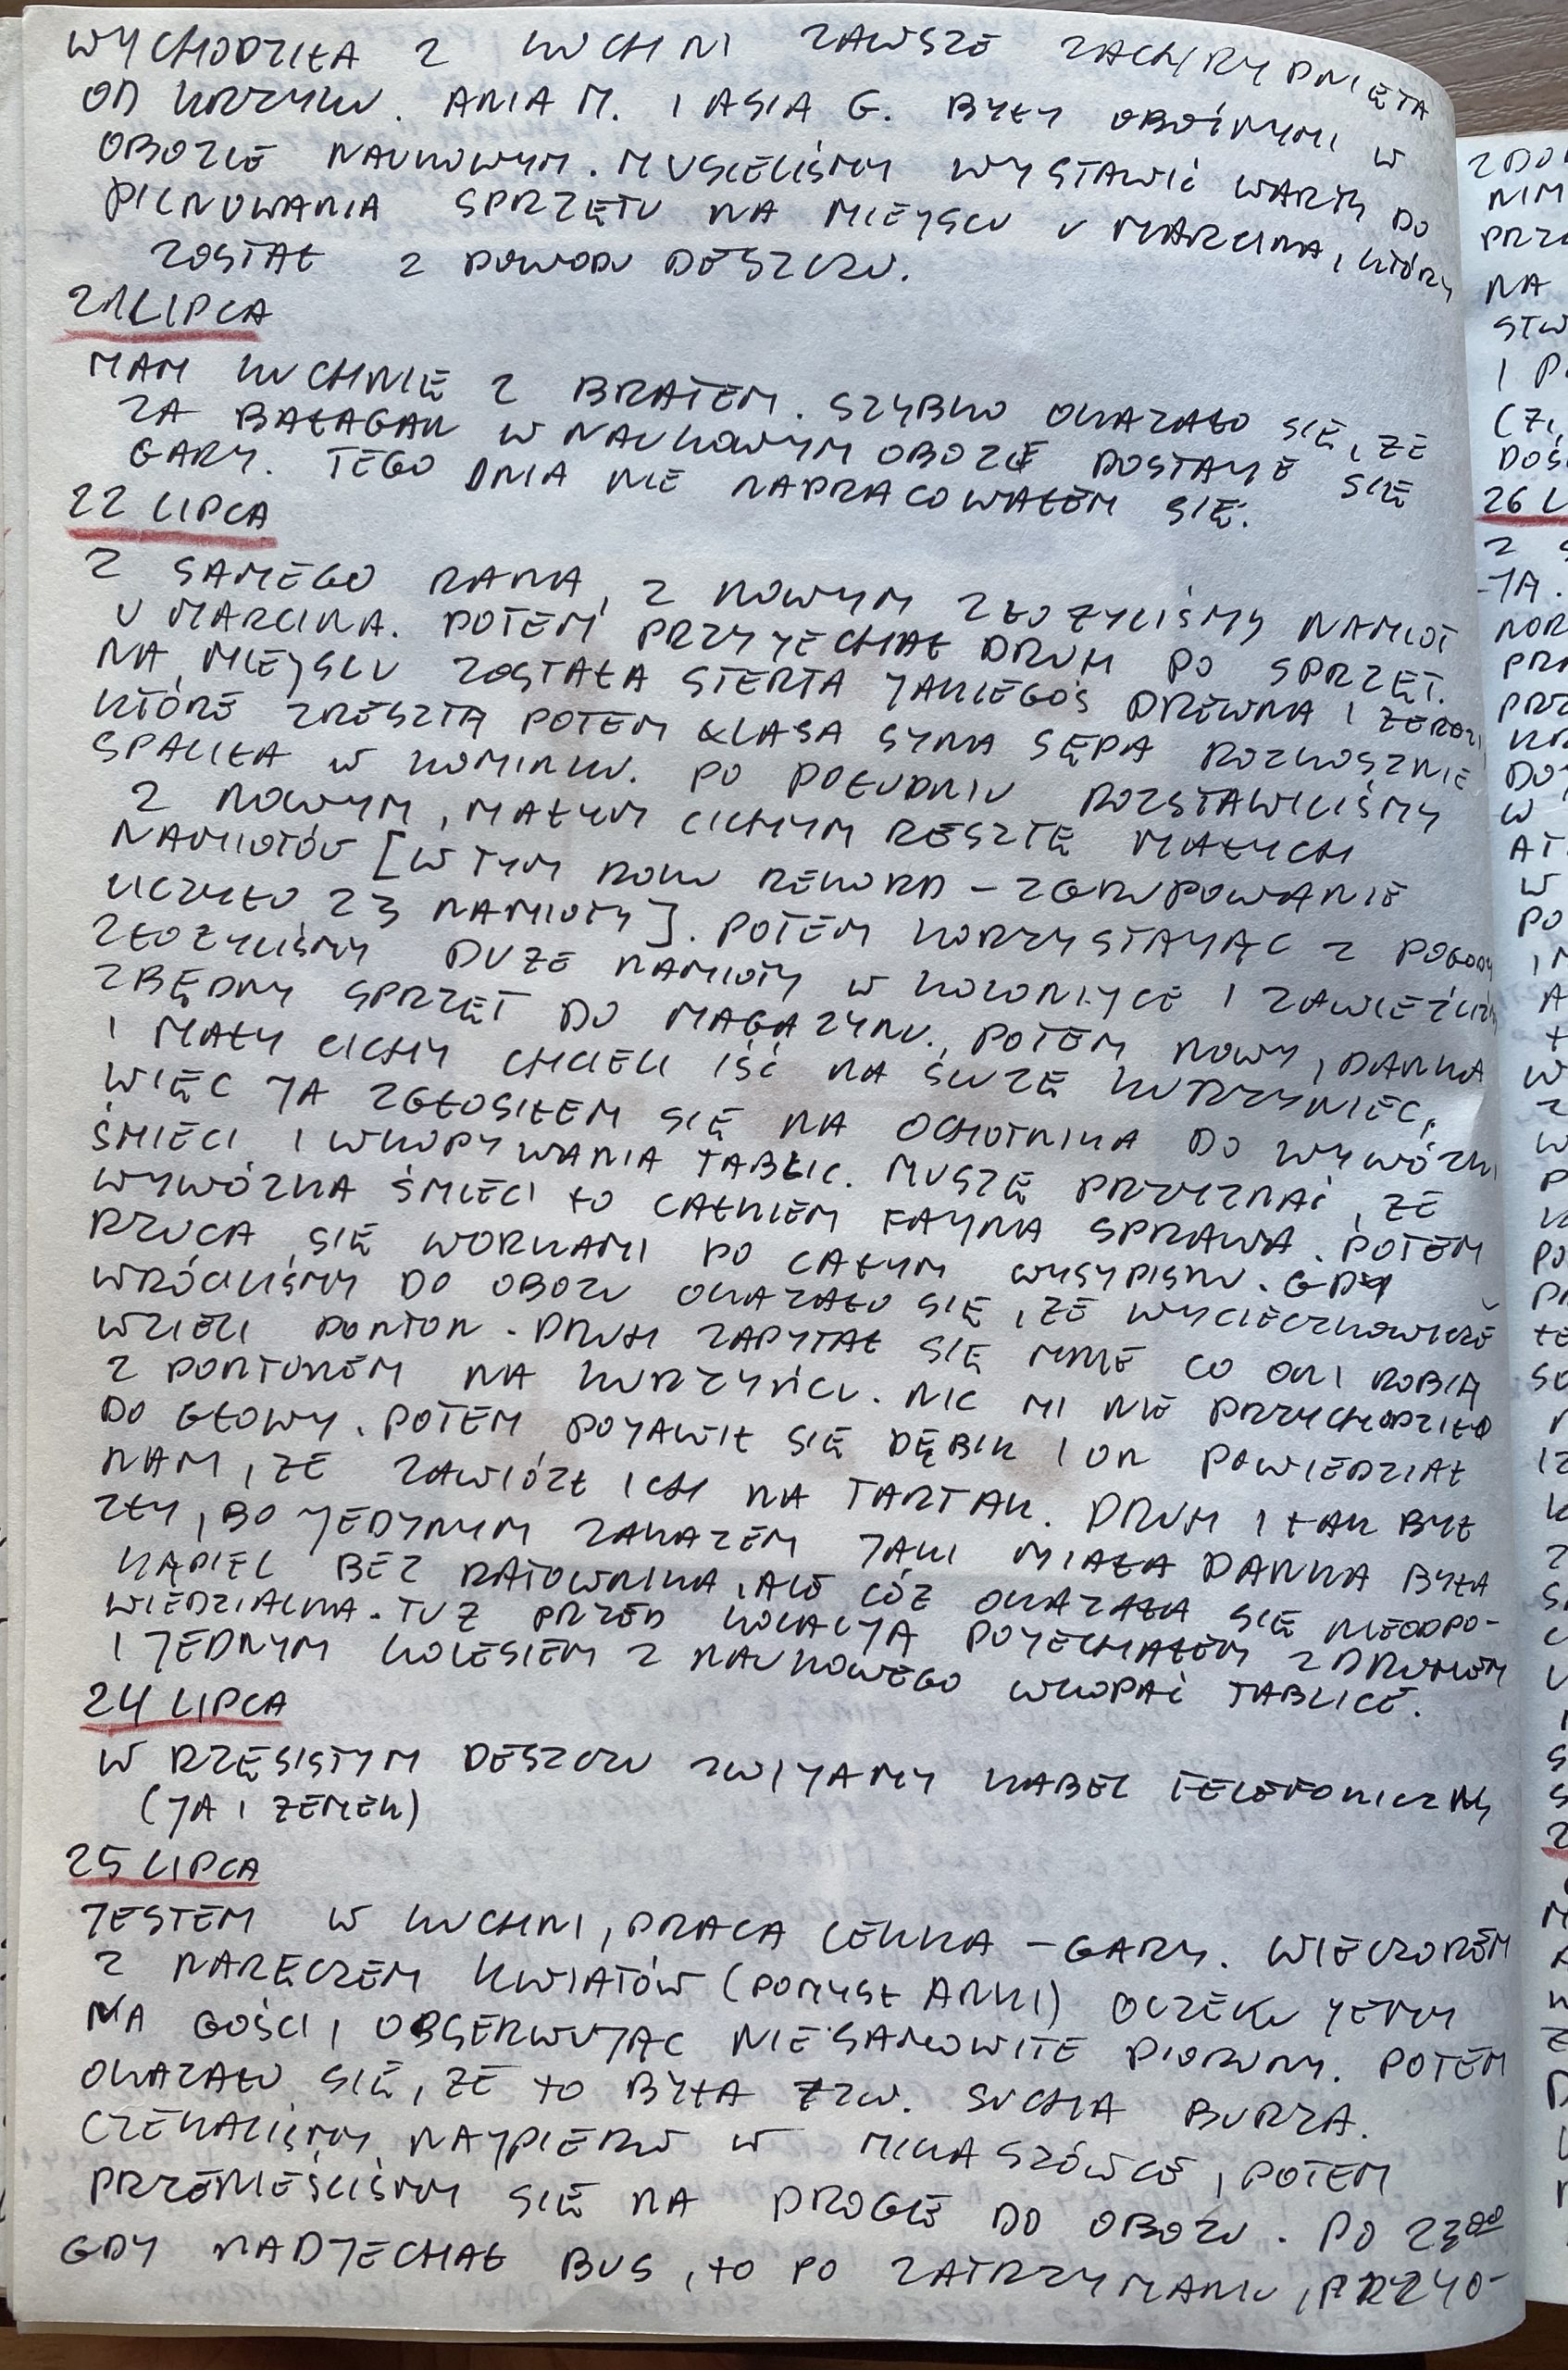 WYCHODZIŁA Z KUCHNI ZAWSZE ZACHRYPNIĘTA
OD KRZYKU. ANIA M. I ASIA G. BYŁY OBOŹNYMI W
OBOZIE NAUKOWYM. MUSIELIŚMY WYSTAWIĆ WARTY DO
PILNOWANIA SPRZĘTU NA MIEJSCU U MARCINA, KTÓRY
ZOSTAŁ Z POWODU DESZCZU.
21 LIPCA
MAM KUCHNIĘ Z BRATEM. SZYBKO OKAZAŁO SIĘ, ŻE
ZA BAŁAGAN W NAUKOWYM OBOZIE DOSTAJE SIĘ
GARY. TEGO DNIA NIE NAPRACOWAŁEM SIĘ.
22 LIPCA
Z SAMEGO RANA, Z NOWYM ZŁOŻYLIŚMY NAMIOT
U MARCINA. POTEM PRZYJECHAŁ DRUH PO SPRZĘT.
NA MIEJSCU ZOSTAŁA STERTA JAKIEGOŚ DREWNA I ŻERDZI
KTÓRE ZRESZTĄ POTEM KLASA SYNA SĘPA ROZKOSZNIE
SPALIŁA W KOMINKU. PO POŁUDNIU ROZSTAWILIŚMY
Z NOWYM, MAŁYM CICHYM RESZTĘ MAŁYCH
NAMIOTÓW [W TYM ROKU REKORD - ZGRUPOWANIE
LICZYŁO 23 NAMIOTY]. POTEM KORZYSTAJĄC Z POGODY
ZŁOŻYLIŚMY DUŻE NAMIOTY W KOLONIJCE I ZAWIEŹLIŚMY
ZBĘDNY SPRZĘT DO MAGAZYNU. POTEM NOWY, DANKA
I MAŁY CICHY CHCIELI IŚĆ NA ŚLUZĘ KURZYNIEC,
WIĘC JA ZGŁOSIŁEM SIĘ NA OCHOTNIKA DO WYWÓZKI
ŚMIECI I WKOPYWANIA TABLIC. MUSZĘ PRZYZNAĆ, ŻE
WYWÓZKA ŚMIECI TO CAŁKIEM FAJNA SPRAWA. POTEM
RZUCA SIĘ WORKAMI PO CAŁYM WYSYPISKU. GDY
WRÓCILIŚMY DO OBOZU OKAZAŁO SIĘ, ŻE WYCIECZKOWICZE
WZIELI PONTON. DRUH ZAPYTAŁ SIĘ MNIE CO ONI ROBIĄ
Z PONTONEM NA KURZYŃCU. NIC MI NIE PRZYCHODZIŁO
DO GŁOWY. POTEM POJAWIŁ SIĘ DĘBIK I ON POWIEDZIAŁ
NAM, ŻE ZAWIÓZŁ ICH NA TARTAK. DRUH I TAK BYŁ
ZŁY, BO JEDYNYM ZAKAZEM JAKI MIAŁA DANKA BYŁA
KĄPIEL BEZ RATOWNIKA, ALE CÓŻ OKAZAŁA SIĘ NIEODPO-
WIEDZIALNA. TUŻ PRZED KOLACJĄ POJECHAŁEM Z DRUHEM
I JEDNYM KOLESIEM Z NAUKOWEGO WKOPAĆ TABLICE.
24 LIPCA
W RZĘSISTYM DESZCZU ZWIJAMY KABEL TELEFONICZNY
(JA I ZEMEK)
25 LIPCA
JESTEM W KUCHNI, PRACA LEKKA - GARY. WIECZOREM
Z NARĘCZEM KWIATÓW (POMYSŁ ANKI) OCZEKUJEMY
NA GOŚCI, OBSERWUJĄC NIESAMOWITE PIORUNY. POTEM
OKAZAŁO SIĘ, ŻE TO BYŁA TZW. SUCHA BURZA.
CZEKALIŚMY NAJPIERW W MIKASZÓWCE, POTEM
PRZENIEŚLIŚMY SIĘ NA DROGĘ DO OBOZU. PO 23⁰⁰
GDY NADJECHAŁ BUS, TO PO ZATRZYMANIU, PRZYO-
26 L